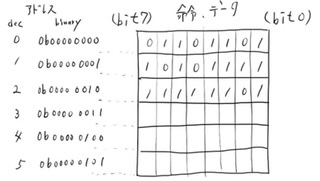 アドレス 命令、データ
dec binary (bit7) (bit0)
0 0b00000000 0 1 1 0 1 1 0 1
1 0b00000001 1 0 1 0 1 1 1 1
2 0b00000010 1 1 1 1 1 1 0 1
3 0b00000011
4 0b00000100
5 0b00000101